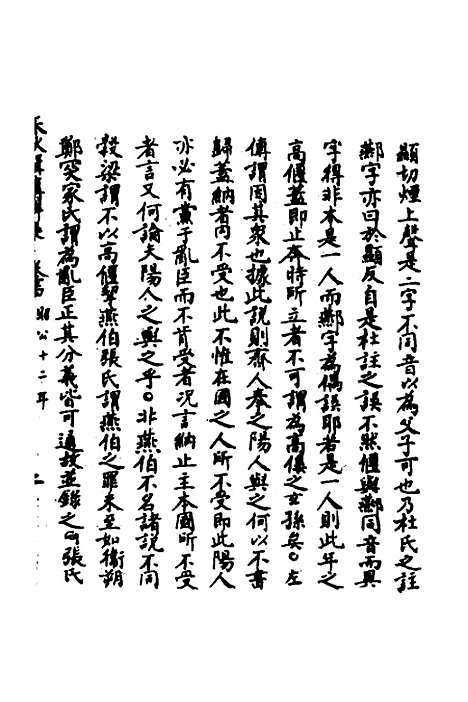 顯切煙上聲是二字不同音以為父子可也乃杜氏之註
酀字亦曰於顯反自是杜註之誤不然偃與酀同音而異
字得非本是一人而酀字為偶誤耶若是一人則此年之
高偃蓋即止奔時所立者不可謂為高傒之玄孫矣○左
傳謂因其衆也據此説則齊人奉之陽人與之何以不書
歸蓋納者内不受也此不惟在國之人所不受即此陽人
亦必有黨于亂臣而不肯受者況言納止主本國所不受
者言又何論夫陽人之與之乎○北燕伯不名諸説不同
穀梁謂不以高偃挈燕伯張氏謂燕伯之罪未至如衞朔
鄭突家氏謂為亂臣正其分義皆可通故並錄之○張氏
昭公十二年